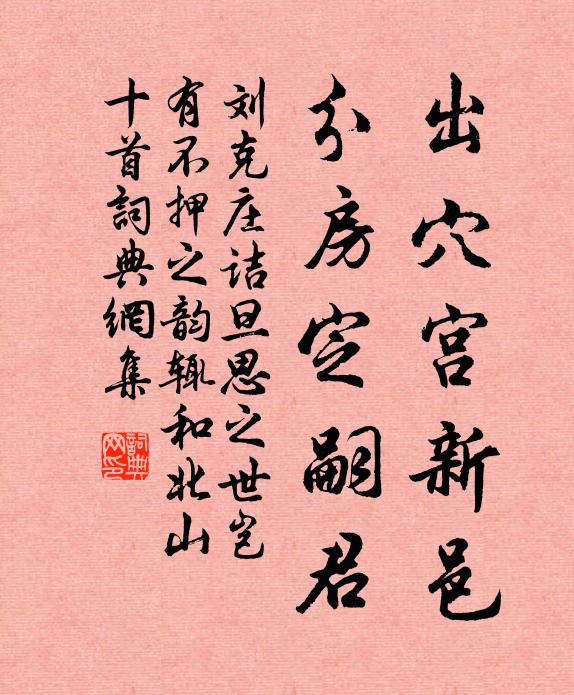 出穴宫新邑
分房定嗣君
刘克庄诘旦思之世岂
有不押之韵辄和北山
十首詞典網集
詞典
网印